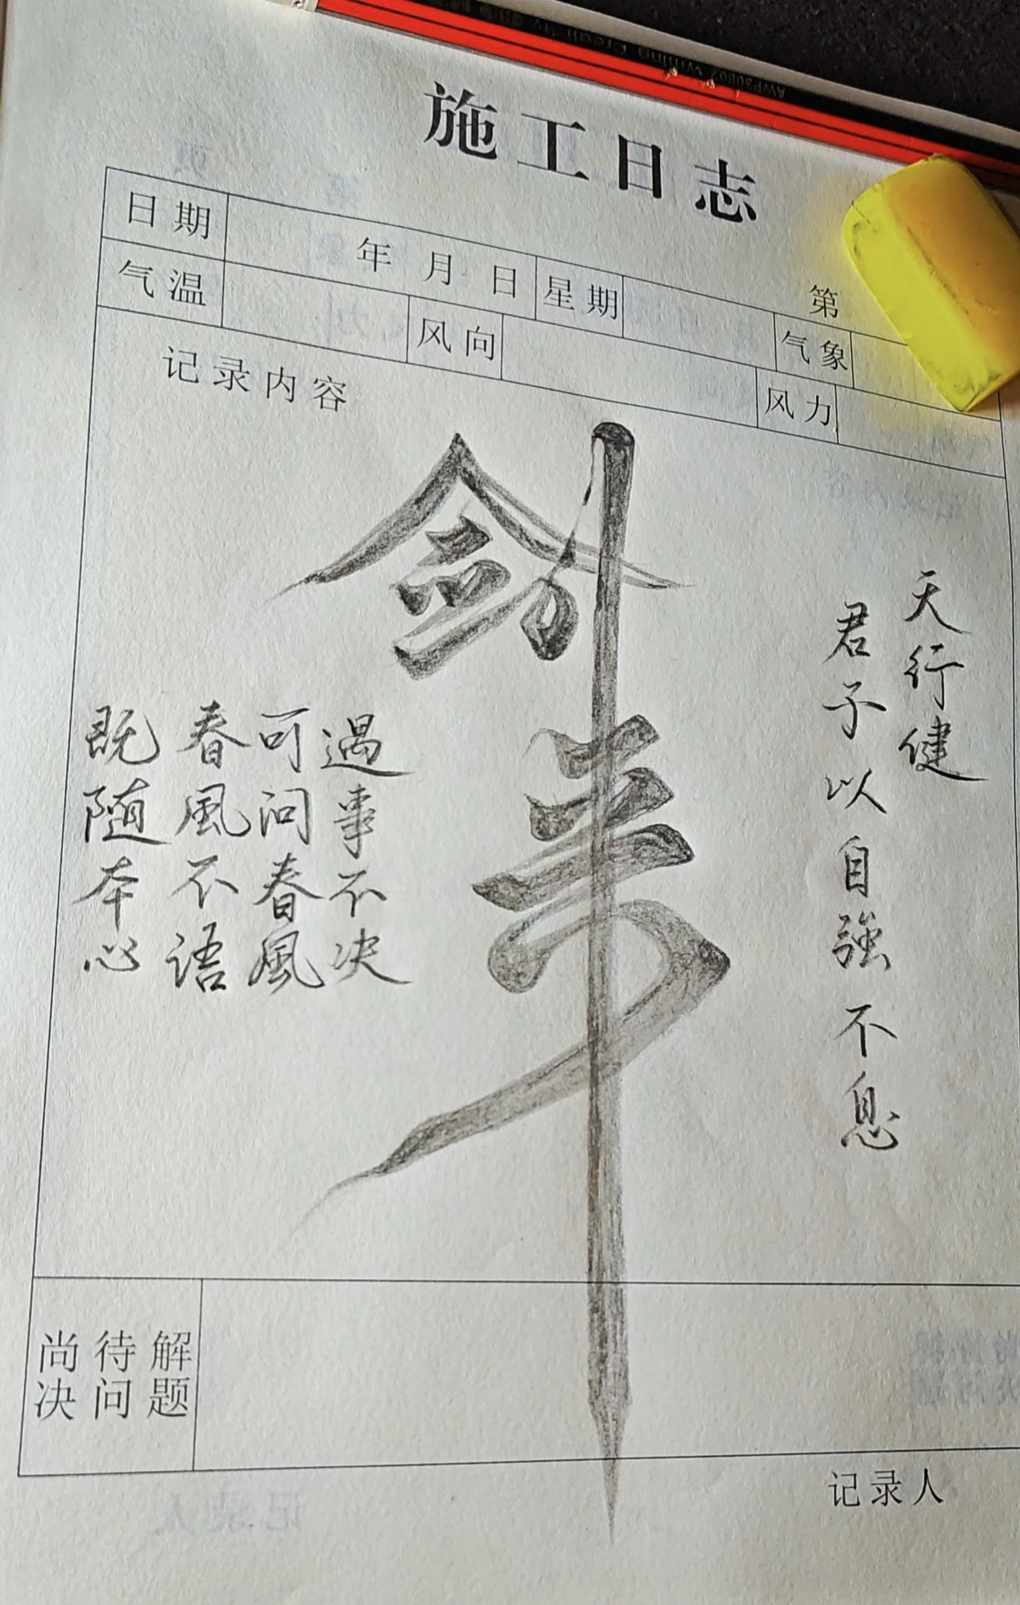 施工日志
日期 年 月 日 星期 第
气温 风向 气象
风力
记录内容
剑来
天行健
君子以自強不息
遇事不决
可问春風
春風不语
既随本心
尚待解
决问题
记录人